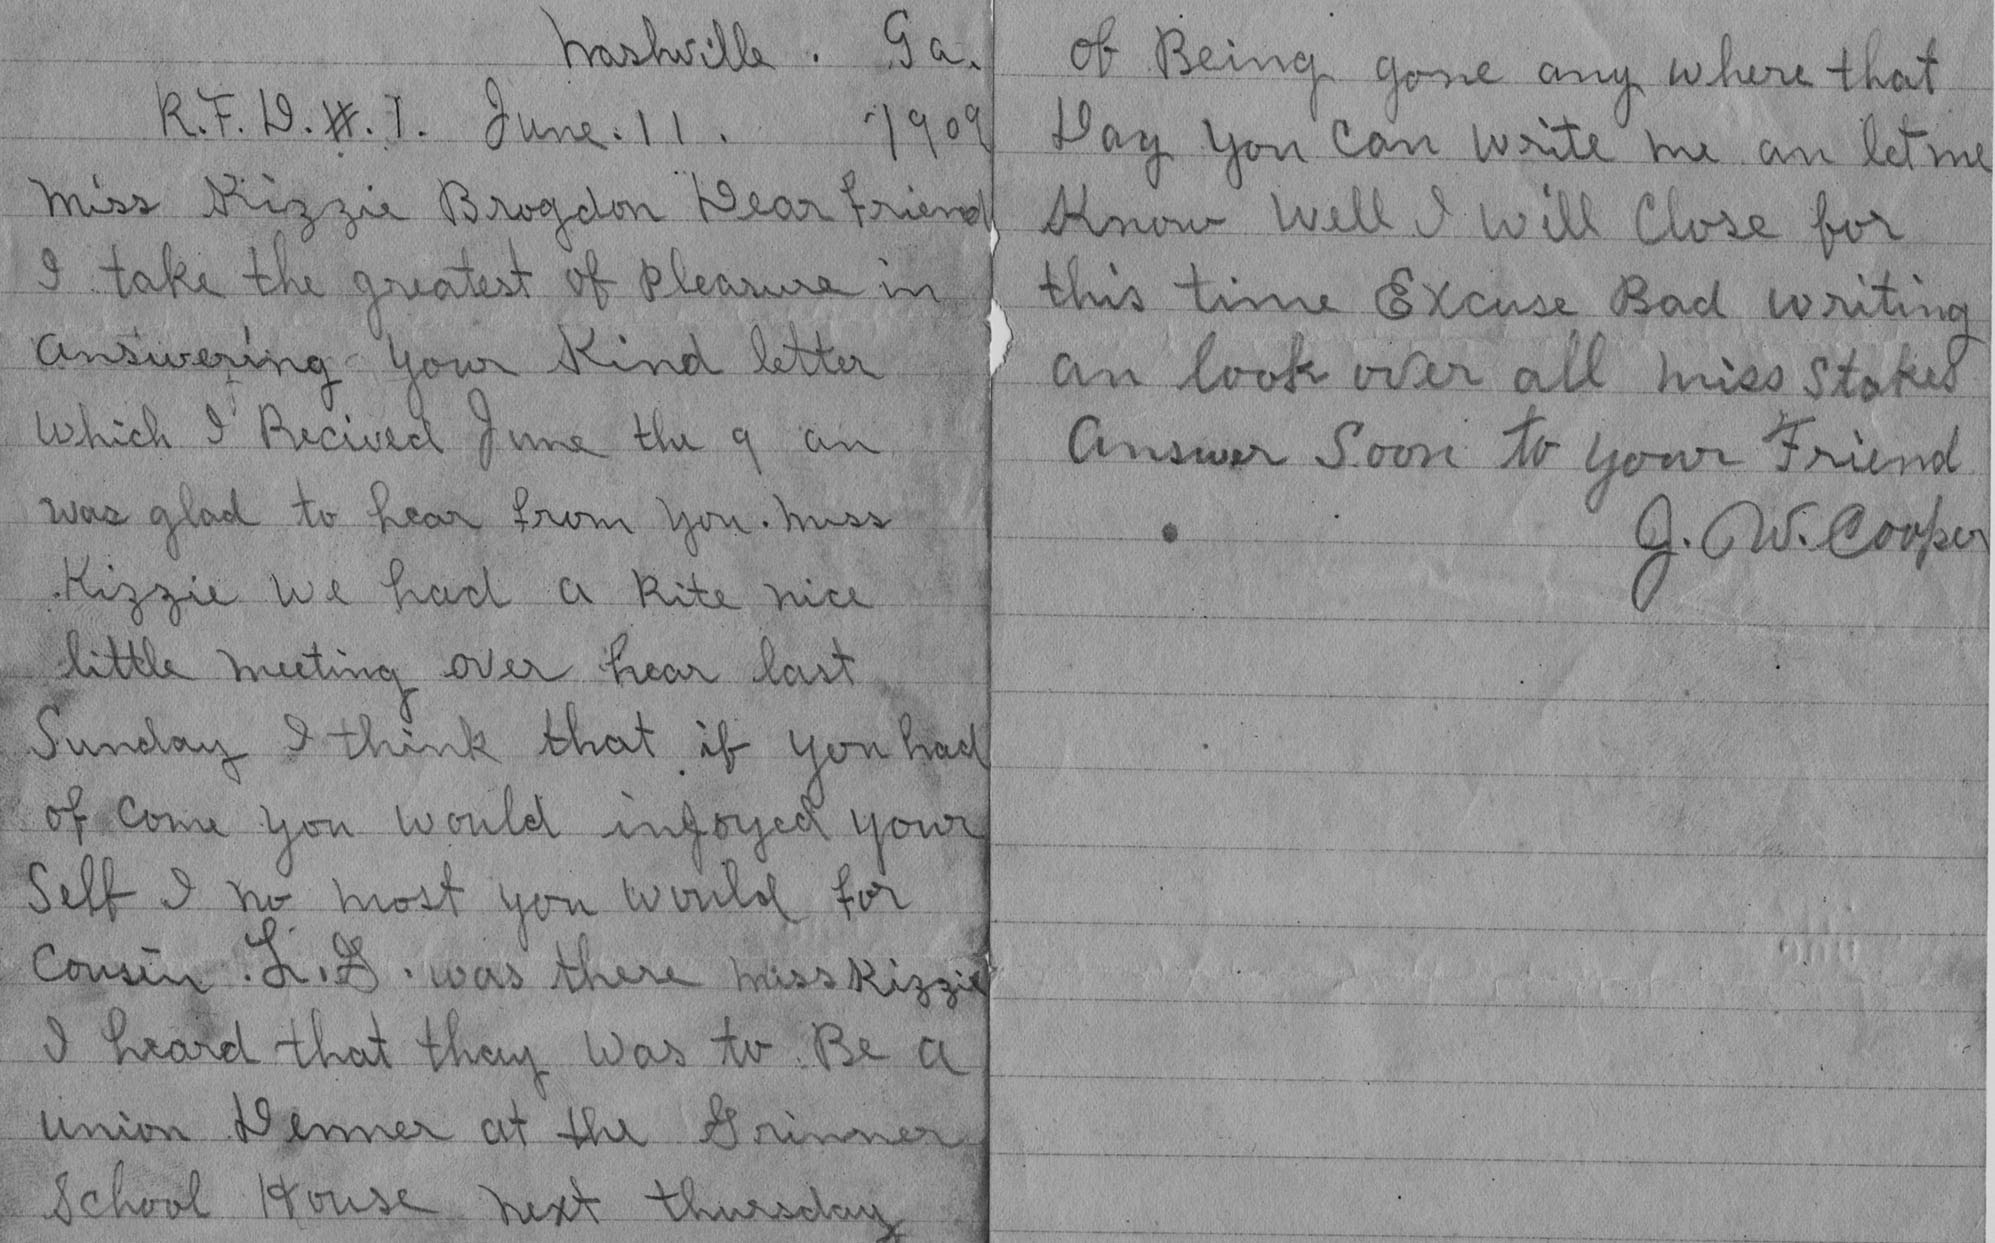 Nashville. Ga.
R.F.D.#.1. June.11. 1909
Miss Kizzie Brogdon Dear friend
I take the greatest of Pleasure in
answering your Kind letter
which I Recived June the 9 an
was glad to hear from you. miss
Kizzie we had a Rite nice
little meeting over hear last
Sunday I think that if you had
of come you would injoyed your
Self I no most you would for
Cousin L.G. was there miss Kizzie
I heard that thay was to Be a
union Denner at the Grinner
School House next thursday
of Being gone any where that
Day you can write me an let me
Know well I will Close for
this time Excuse Bad writing
an look over all miss stakes
answer Soon to your Friend
J. W. Cooper